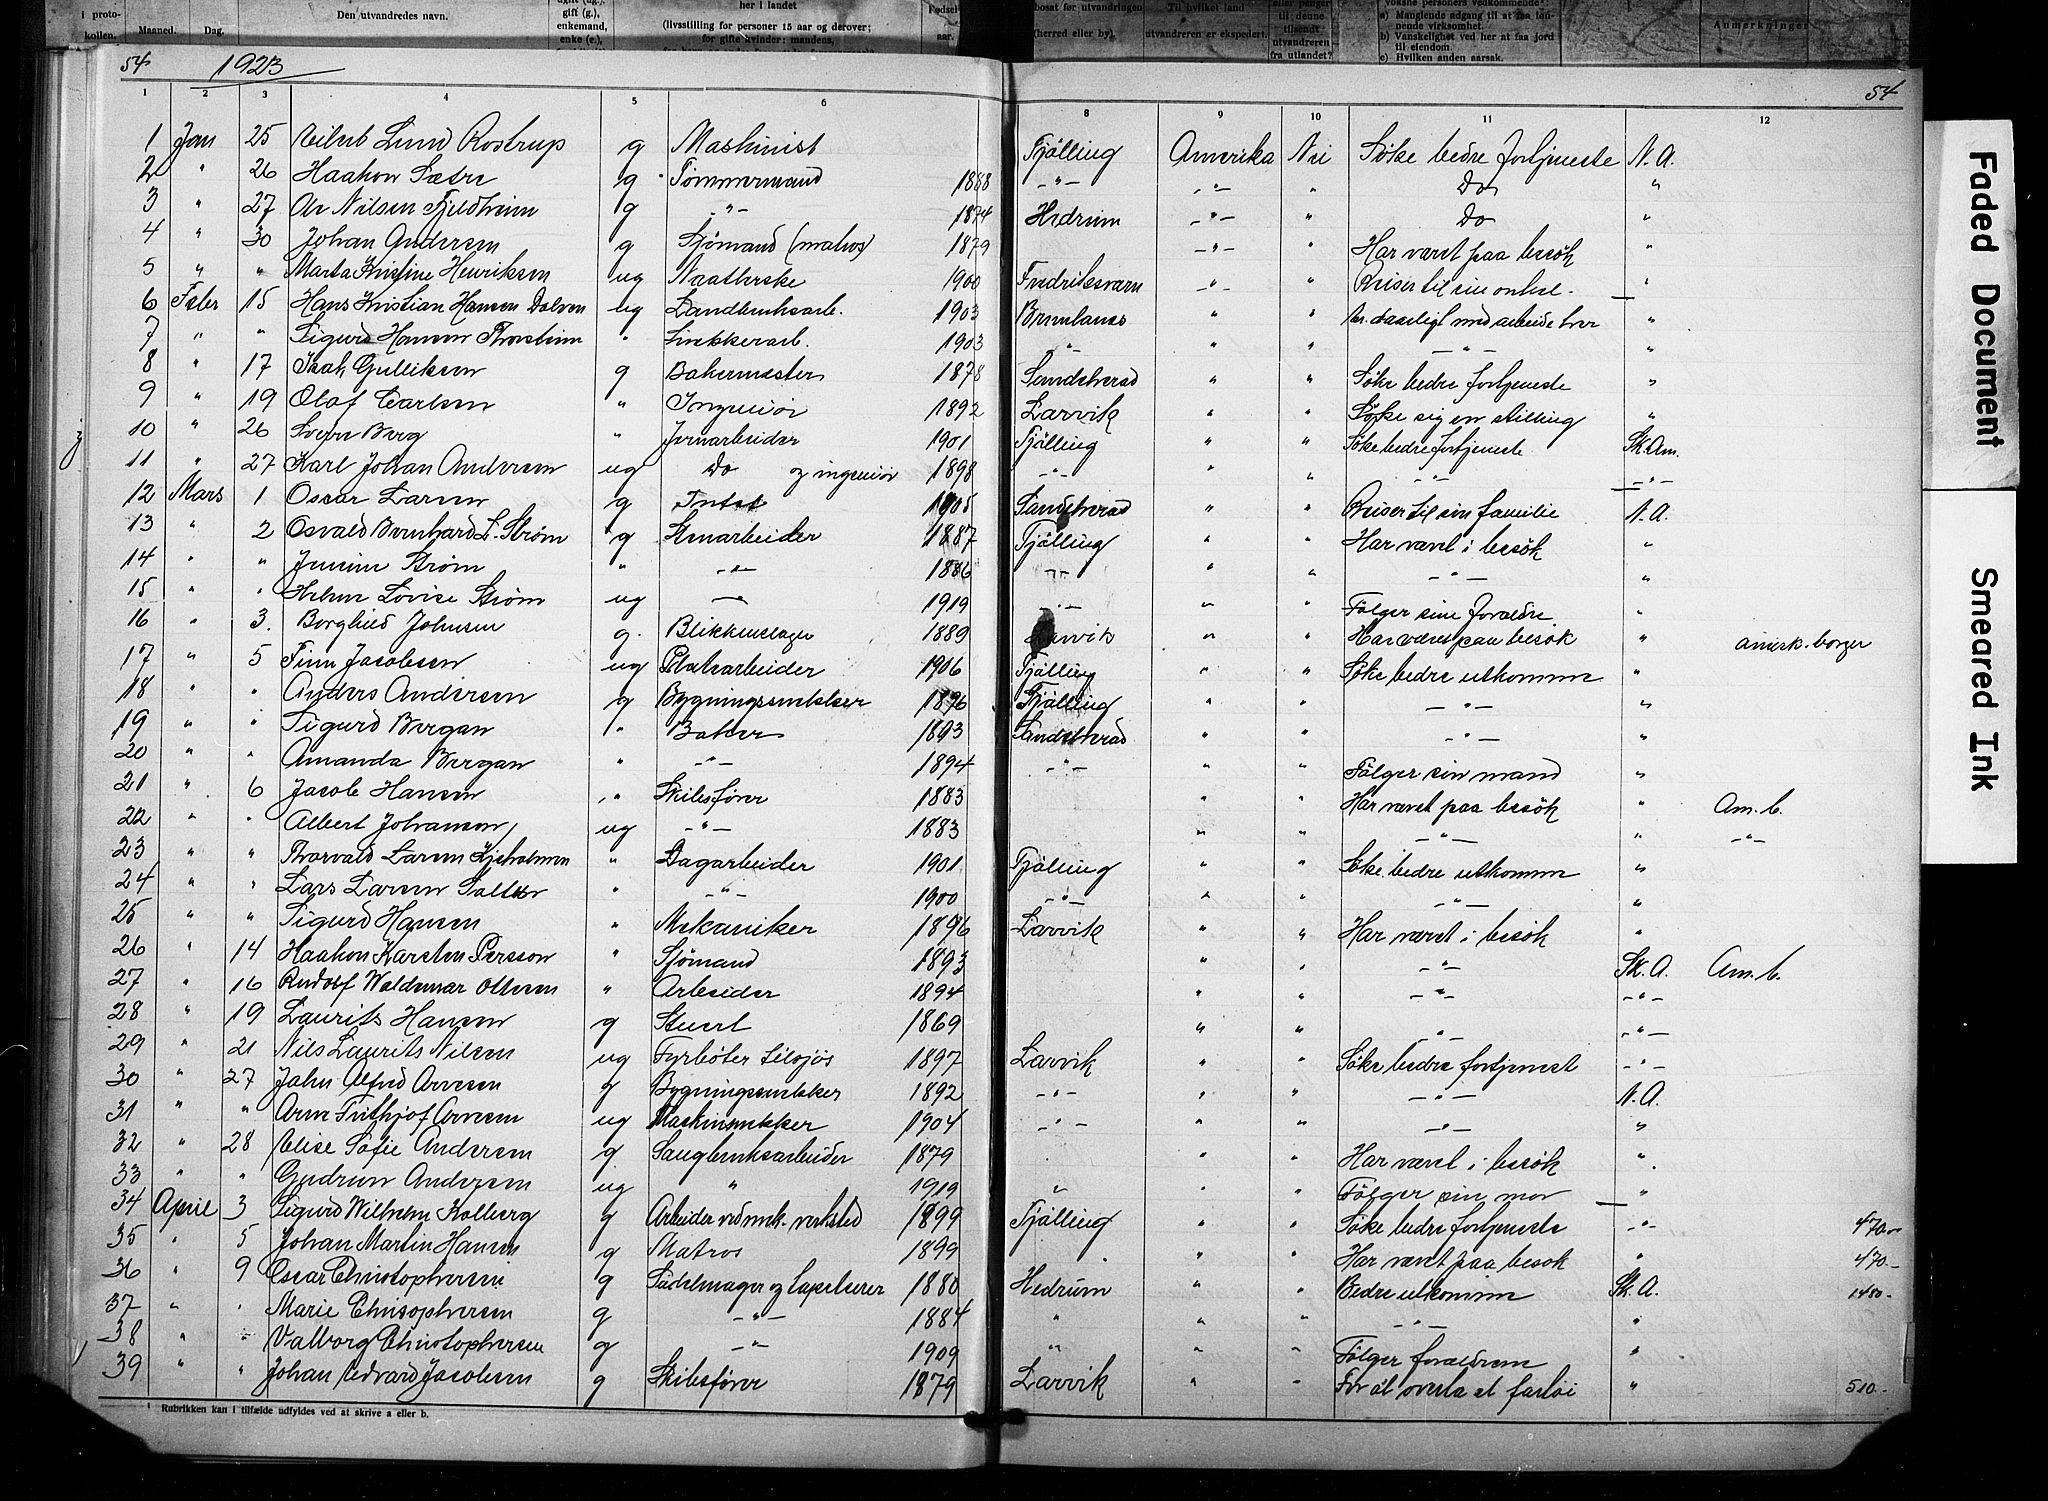 i proto-
kollen.
Maaned.
Dag.
Den utvandredes navn.
gift (g.),
enkemand,
enke (e.),
her i landet
(livsstilling for personer 15 aar og derover;
for gifte kvinder: mandens,
Fødsels-
aar.
bosat før utvandringen
(herred eller by).
Til hvilket land
utvandreren er ekspedert.
eller penger
til denne
tilsendt
utvandreren
fra utlandet?
voksne personers vedkommende:
a) Manglende adgang til at faa løn-
nende virksomhet.
b) Vanskelighet ved her at faa jord
til eiendom.
c) Hvilken anden aarsak.
Anmerkninger
54 1923 54
1 2 3 4 5 6 8 9 10 11 12
1 Jan 25 Lund Rostrup g Maskinist Tjølling Amerika Nei Søke bedre fortjeneste N.A.
2 " 26 Haakon Sætre g Tømmermand 1888 -"- -"- " Do "
3 " 27 Nilsen Fjeldheim g -"- 1874 Hedrum -"- " Do "
4 " 30 Johan Andersen g Sjømand (matros) 1879 -"- " Har været paa besøk "
5 " " Marta Kristine Henriksen ug 1900 Fredriksværn -"- " Reiser til sin onkel. "
6 Febr 15 Hans Kristian Hansen Dolven ug Landbruksarb. 1903 Brunlanes " " "
7 " " Sigurd Hansen " Snekkerarb. 1903 -"- " " -"- "
8 " 17 Isak Gulliksen g Bakermester 1878 Sandeherad " " Søke bedre fortjeneste "
9 " 19 Olaf Carlsen " Ingeniør 1892 Larvik " " Søke sig en stilling "
10 " 26 Berg " Jernarbeider 1901 Tjølling " " Søke bedre fortjeneste Sk. Am.
11 " 27 Karl Johan Andersen ug Do og ingeniør 1898 -"- " " -"- -"-
12 Mars 1 Oscar Larsen g Intet 1905 Sandeherad " " Reiser til sin familie N.A.
13 " 2 Osvald Bernhard L. Strøm g Stenarbeider 1887 Tjølling " " Har været i besøk "
14 " " Strøm " -"- 1886 -"- " " -"- "
15 " " Lovise Strøm ug -"- 1919 -"- " " Følger sine forældre "
16 " 3. Borghild Johnsen g. Blikkenslager 1889 Larvik " " Har været paa besøk " amerk. borger
17 " 5 Finn Jacobsen ug Platearbeider 1906 Tjølling " " Søke bedre utkomme "
18 " " Anders Andersen g Bygningssnekker 1896 Tjølling " " -"- "
19 " " Sigurd Bergan " Baker 1893 Sandeherad " " -"- "
20 " " Amanda Bergan " -"- 1894 -"- " " Følger sin mand "
21 " 6 Jacob Hansen " Skibsfører 1883 " " Har været paa besøk " Am. b.
22 " " Albert Johansen ug -"- 1883 " " -"- " -"-
23 " " Thorvald Larsen Kjeholmen " Dagarbeider 1901 Tjølling " " Søke bedre utkomme "
24 " " Lars Larsen " -"- 1900 -"- " " -"- "
25 " " Sigurd Hansen " Mekaniker 1896 Larvik " " Har været i besøk "
26 " 14 Haakon Karsten Persson " Sjømand 1893 " " -"- Sk. A. Am. b.
27 " 16 Rudolf Waldemar Ottesen " Arbeider 1894 " " -"- -"-
28 " 19 Laurits Hansen g Stuert 1869 " " " -"-
29 " 21 Nils Laurits Nilsen ug Fyrbøter tilsjøs 1897 Larvik " " Søke bedre fortjenest -"-
30 " 27 John Alfred Arvesen g Bygningssnekker 1892 -"- " " -"- N.A.
31 " " Arne Frithjof Arvesen ug Maskinsnekker 1904 -"- " " -"- "
32 " 28 Elise Sofie Andersen g Sangbruksarbeider 1879 " " Har været i besøk "
33 " " Gudrun Andersen ug " 1919 " " " Følger sin mor "
34 April 3 Sigurd Wilhelm Kolberg g Arbeider ved mek. verksted 1899 Tjølling " " Søke bedre fortjeneste -"- 470.-
35 " 5 Johan Martin Hansen g Matros 1899 " " " Har været paa besøk " 470.-
36 " 9 Oscar Christophersen g Sadelmager og tapetserer 1880 Hedrum " " Bedre utkomme Sk. A. 1480.-
37 " " Marie Chrisophersen g -"- 1884 " " " -"- "
38 " " Valborg Christophersen g -"- 1909 " " " Følger forældrene "
39 " " Johan Edvard Jacobsen g Skibsfører 1879 Larvik " " For at overta et fartøi " 510.-
¹ Rubrikken kan i tilfælde utfyldes ved at skrive a eller b.
Faded Document
Smeared Ink